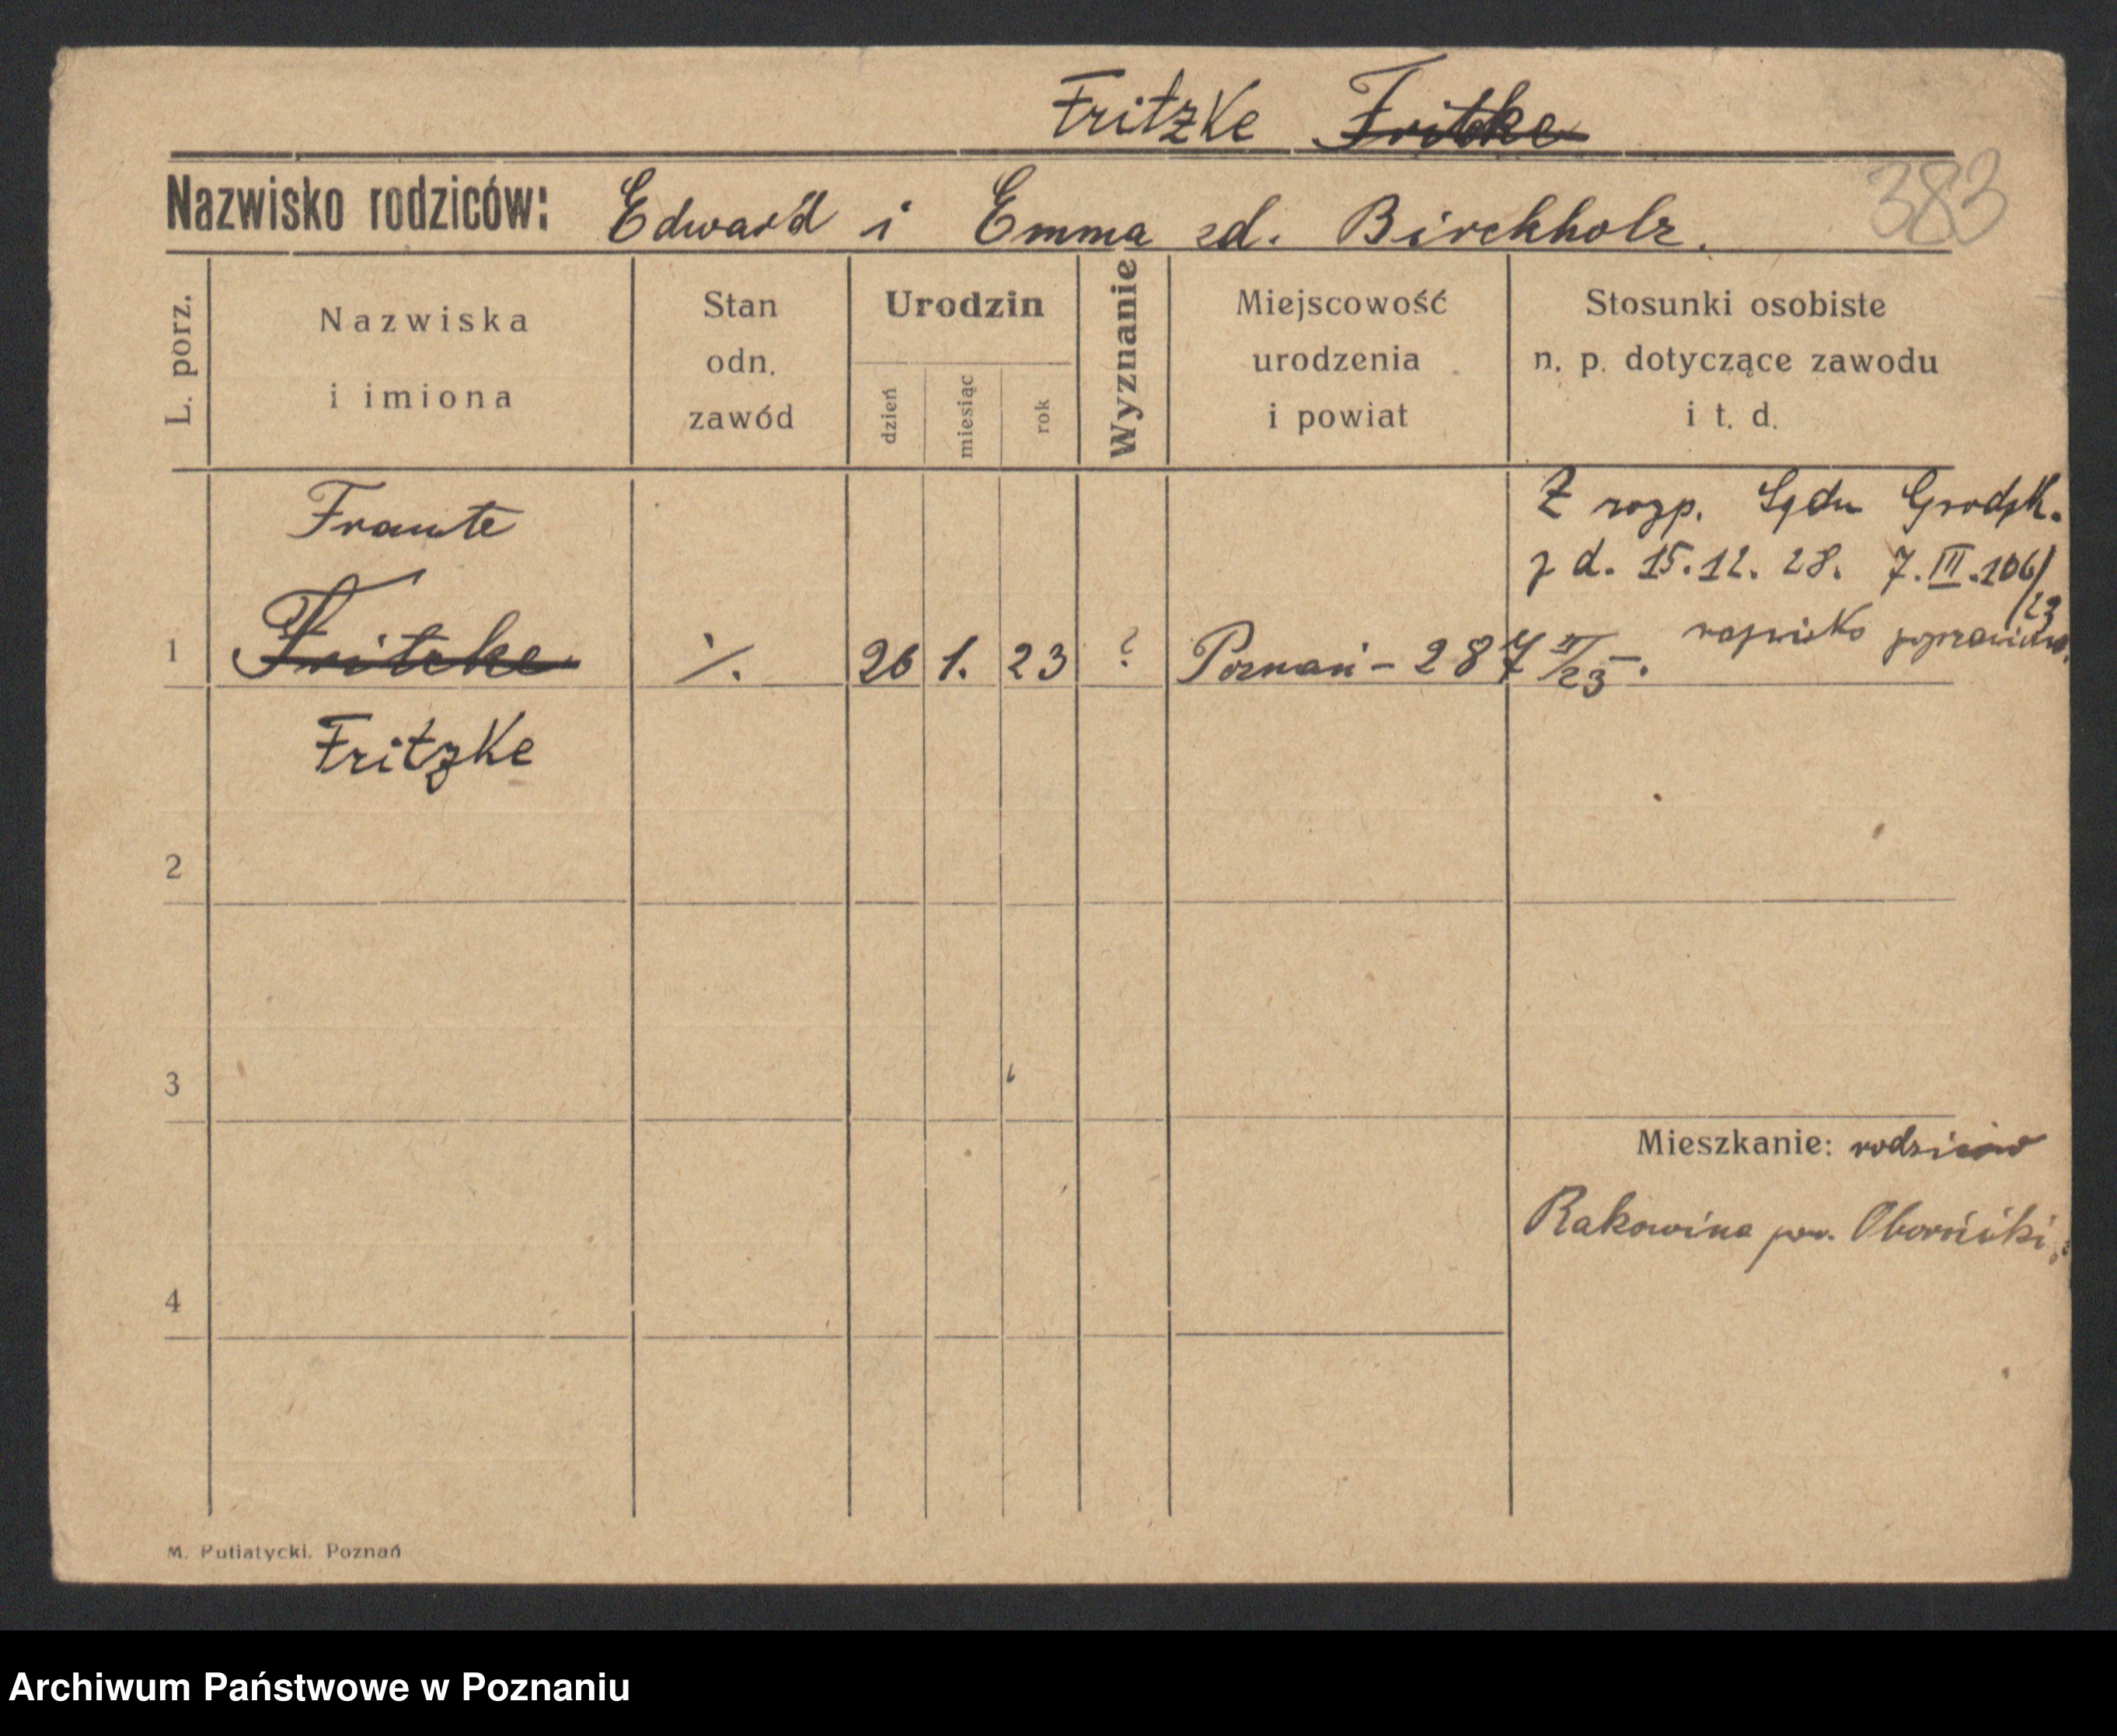 Fritzke Fritke
Nazwisko rodziców: Edward i Emma zd. Birchholz.
383
L. porz.
Nazwiska
i imiona
Stan
odn.
zawód
Urodzin
dzień
miesiąc
rok
Wyznanie
Miejscowość
urodzenia
i powiat
Stosunki osobiste
n. p. dotyczące zawodu
i t. d.
Z rozp. Sądu Grodzk.
z d. 15.12.28. 7.III.106/
/23
nazwisko poprawiono.
Traute
1 Fritzke ./. 26 1. 23 ? Poznań - 287 II/23.
Fritzke
2
3
4
Mieszkanie: rodziców
Rakowina pow. Oborniki
M. Putiatycki. Poznań
Archiwum Państwowe w Poznaniu